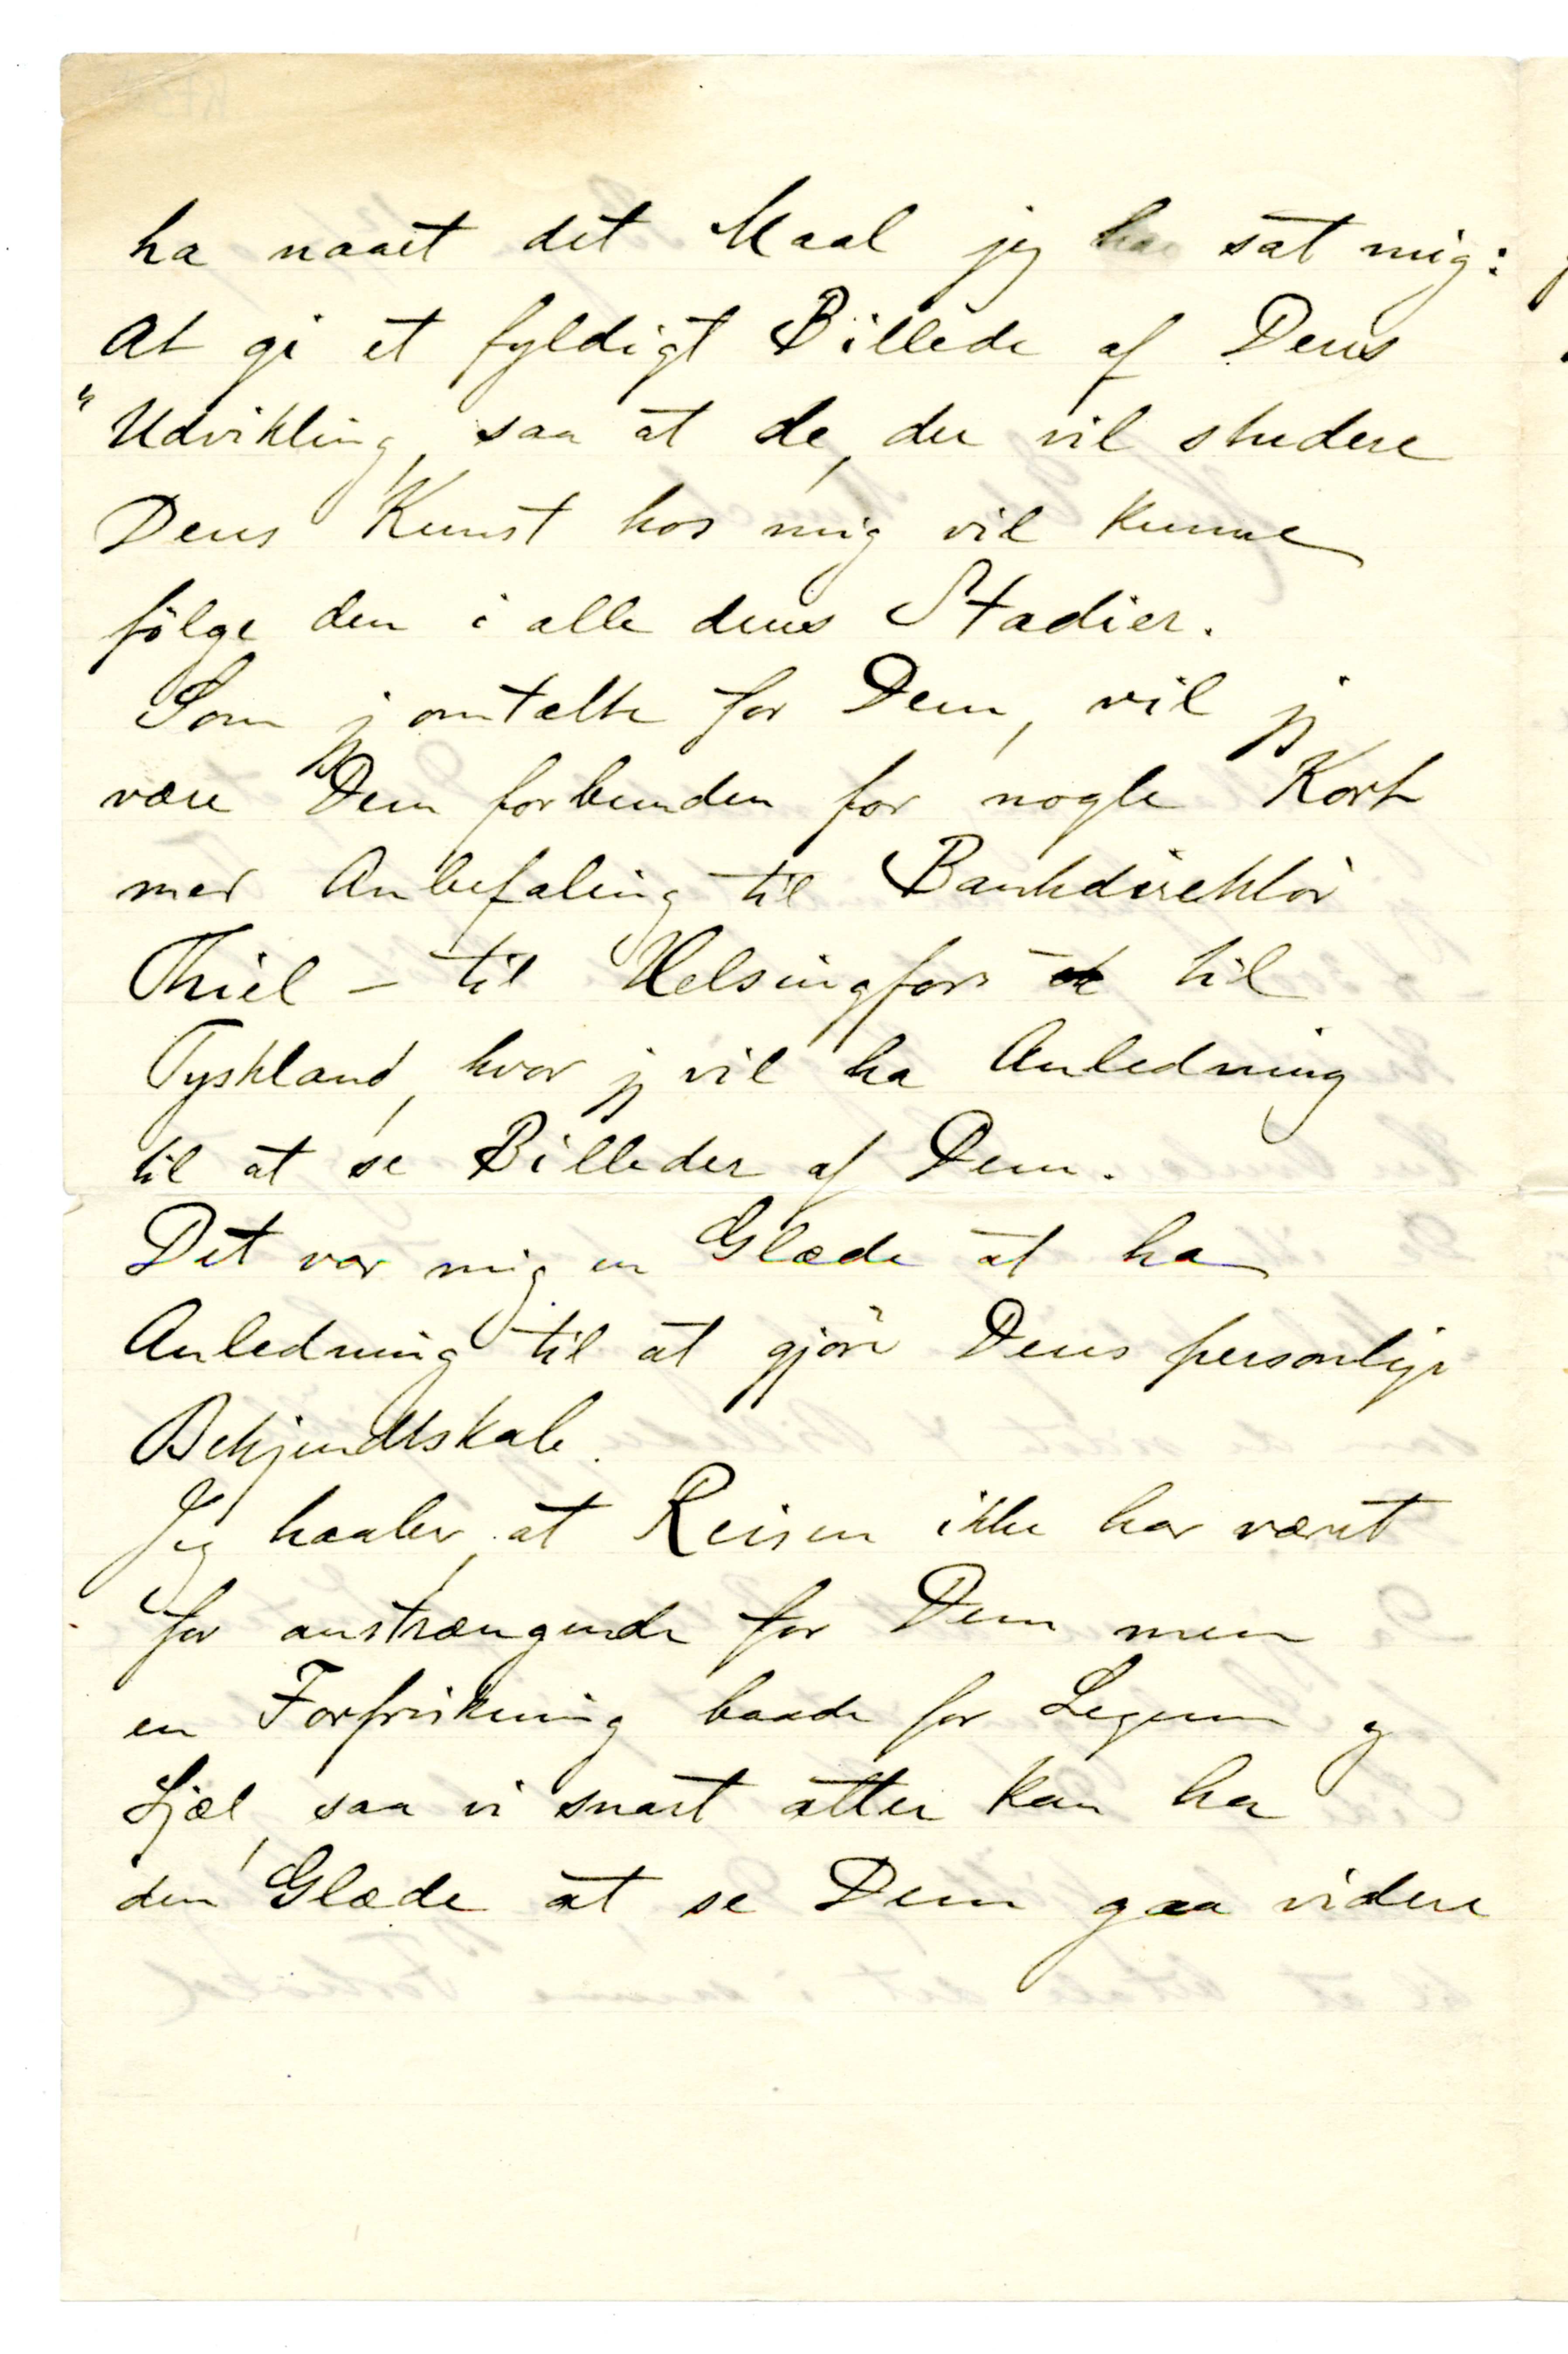 ha naaet det Maal jeg har sat mig:
At gi et fyldigt Billede af Deres
Udvikling, saa at de, der vil studere
Deres Kunst hos mig vil kunne
følge den i alle dens Stadier.
Som jeg omtalte for Dem, vil jeg
være Dem forbunden for nogle Kort
med Anbefaling til Bankdirektör
Thiel – til Helsingfors til
Tyskland, hvor jeg vil ha Anledning
til at se Billeder af Dem.
Det var mig en Glæde at ha
Anledning til at gjöre Deres personlige
Bekjendtskab.
Jeg haaber, at Reisen ikke har været
for anstrængende for Dem men
en Forfriskning baade for Legeme og
Sjæl, saa vi snart atter kan ha
den Glæde at se Dem gaa videre